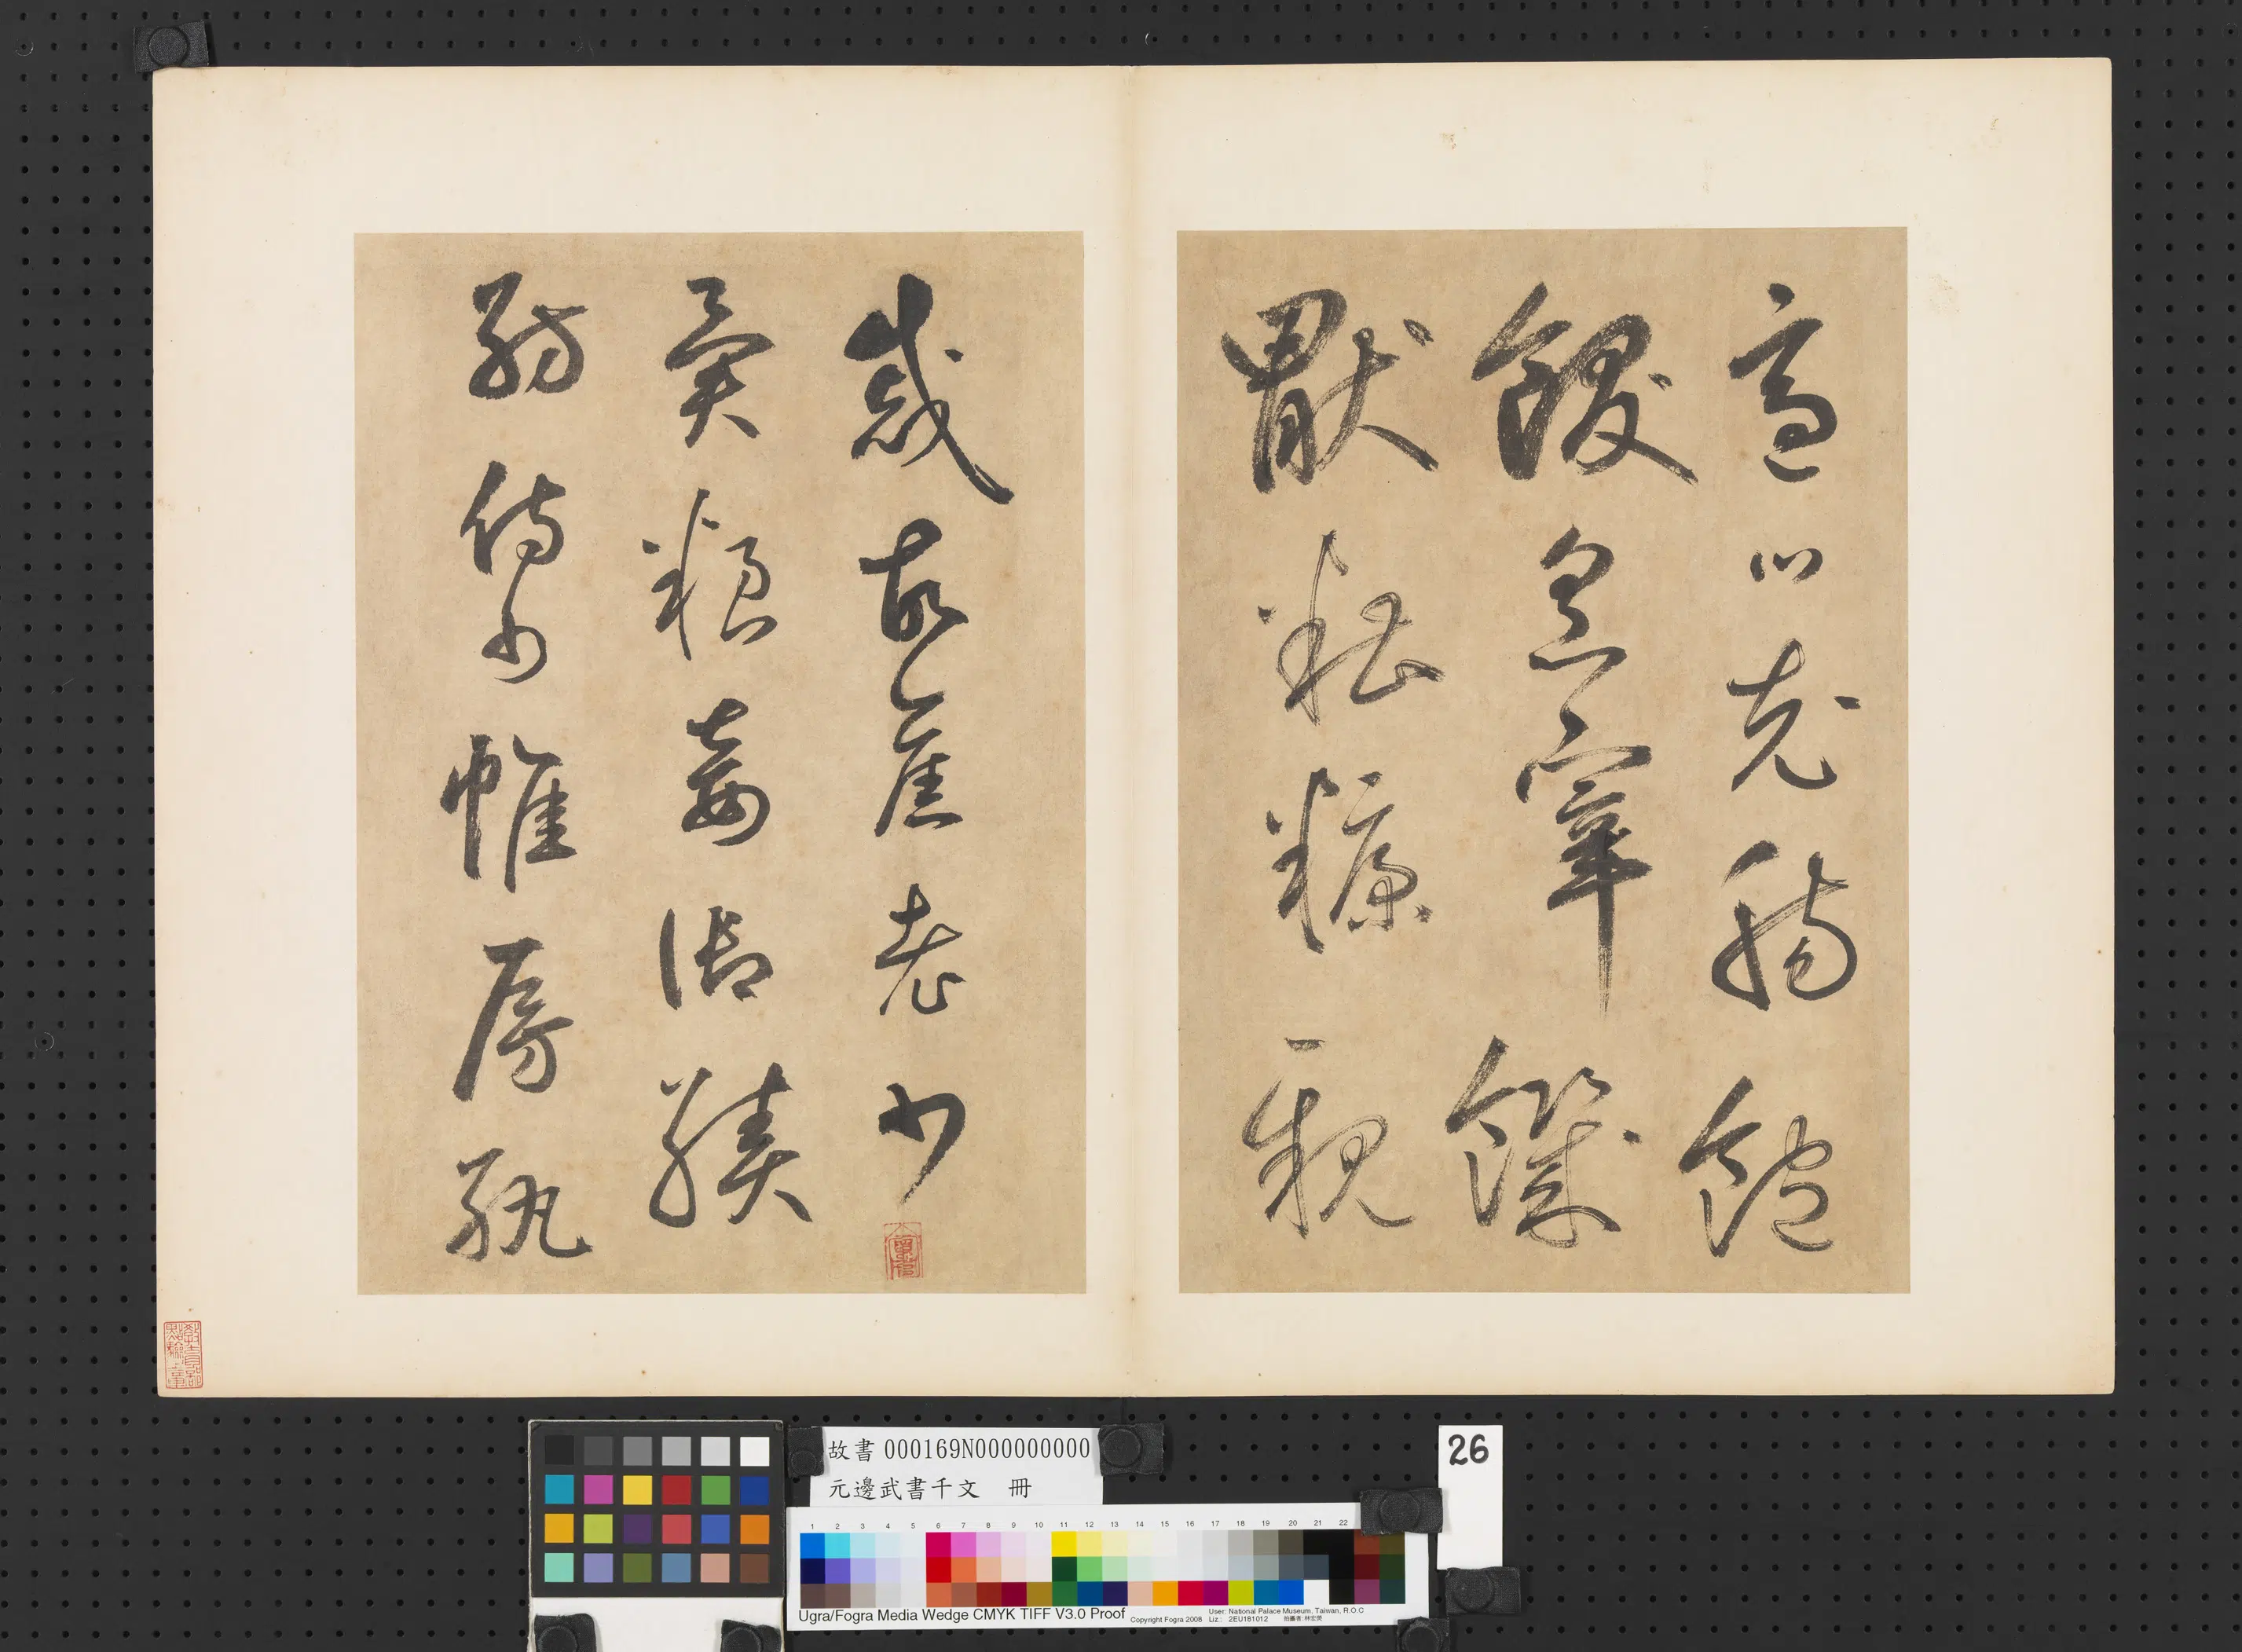 適口充腸飽
飫烹宰饑
猒糟糠親
慼故舊老少
異糧妾御績
紡侍巾帷房紈
故書 000169N000000000
元邊武書千文 冊
26
1 2 3 4 5 6 7 8 9 10 11 12 13 14 15 16 17 18 19 20 21 22
Ugra/Fogra Media Wedge CMYK TIFF V3.0 Proof
Copyright Fogra 2008
User: National Palace Museum, Taiwan, R.O.C
Liz.: 2EU181012